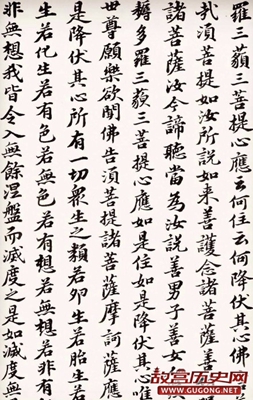 羅三藐三菩提心應云何住云何降伏其心佛
哉須菩提如汝所說如来善護念諸菩薩善
諸菩薩汝今諦聽當為汝說善男子善女
耨多羅三藐三菩提心應如是住如是降伏其心唯
世尊願樂欲聞佛告須菩提諸菩薩摩訶薩應
是降伏其心所有一切衆生之類若卵生若胎生若
生若化生若有色若無色若有想若無想若非有
非無想我皆令入無餘涅盤而滅度之是如滅度無
故宫历史网
WWW.GUGONG.NET